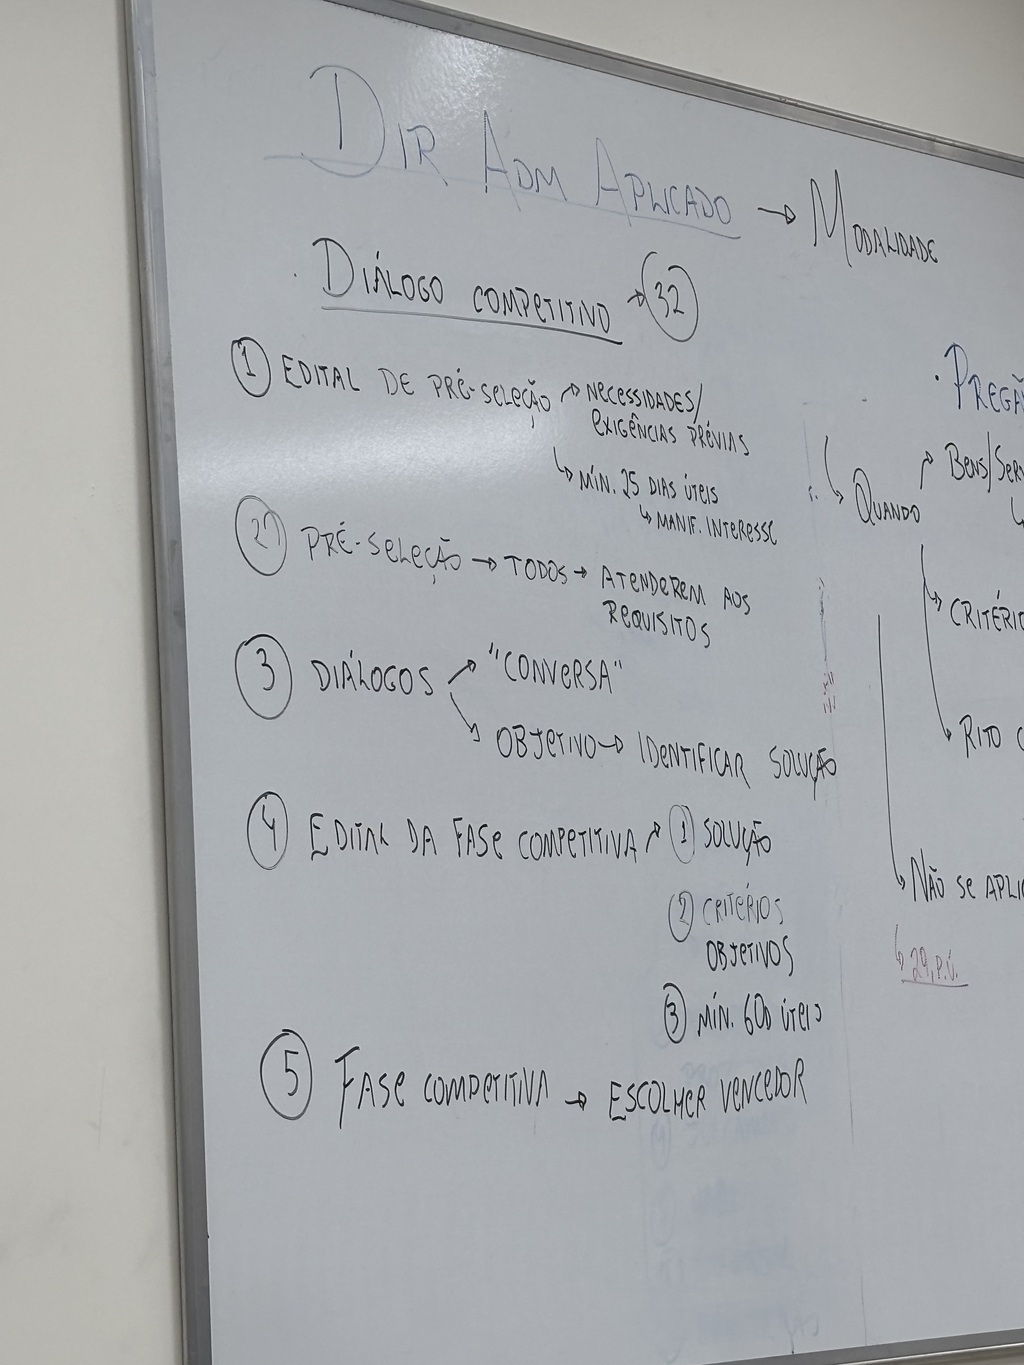 DIR ADM APLICADO → MODALIDADE
· DIÁLOGO COMPETITIVO → 32
1 EDITAL DE PRÉ-SELEÇÃO → NECESSIDADES/
EXIGÊNCIAS PRÉVIAS
↳ MÍN. 25 DIAS ÚTEIS
↳ MANIF. INTERESSE
2 PRÉ-SELEÇÃO → TODOS → ATENDEREM AOS
REQUISITOS
3 DIÁLOGOS → "CONVERSA"
↘ OBJETIVO → IDENTIFICAR SOLUÇÃO
4 EDITAL DA FASE COMPETITIVA → 1 SOLUÇÃO
2 CRITÉRIOS
OBJETIVOS
3 MÍN. 60D ÚTEIS
5 FASE COMPETITIVA → ESCOLHER VENCEDOR
· PREGÃ
↳ QUANDO → BENS/SER
↳ CRITÉRIO
↳ RITO
↳ NÃO SE APLI
↳ 29, P.Ú.